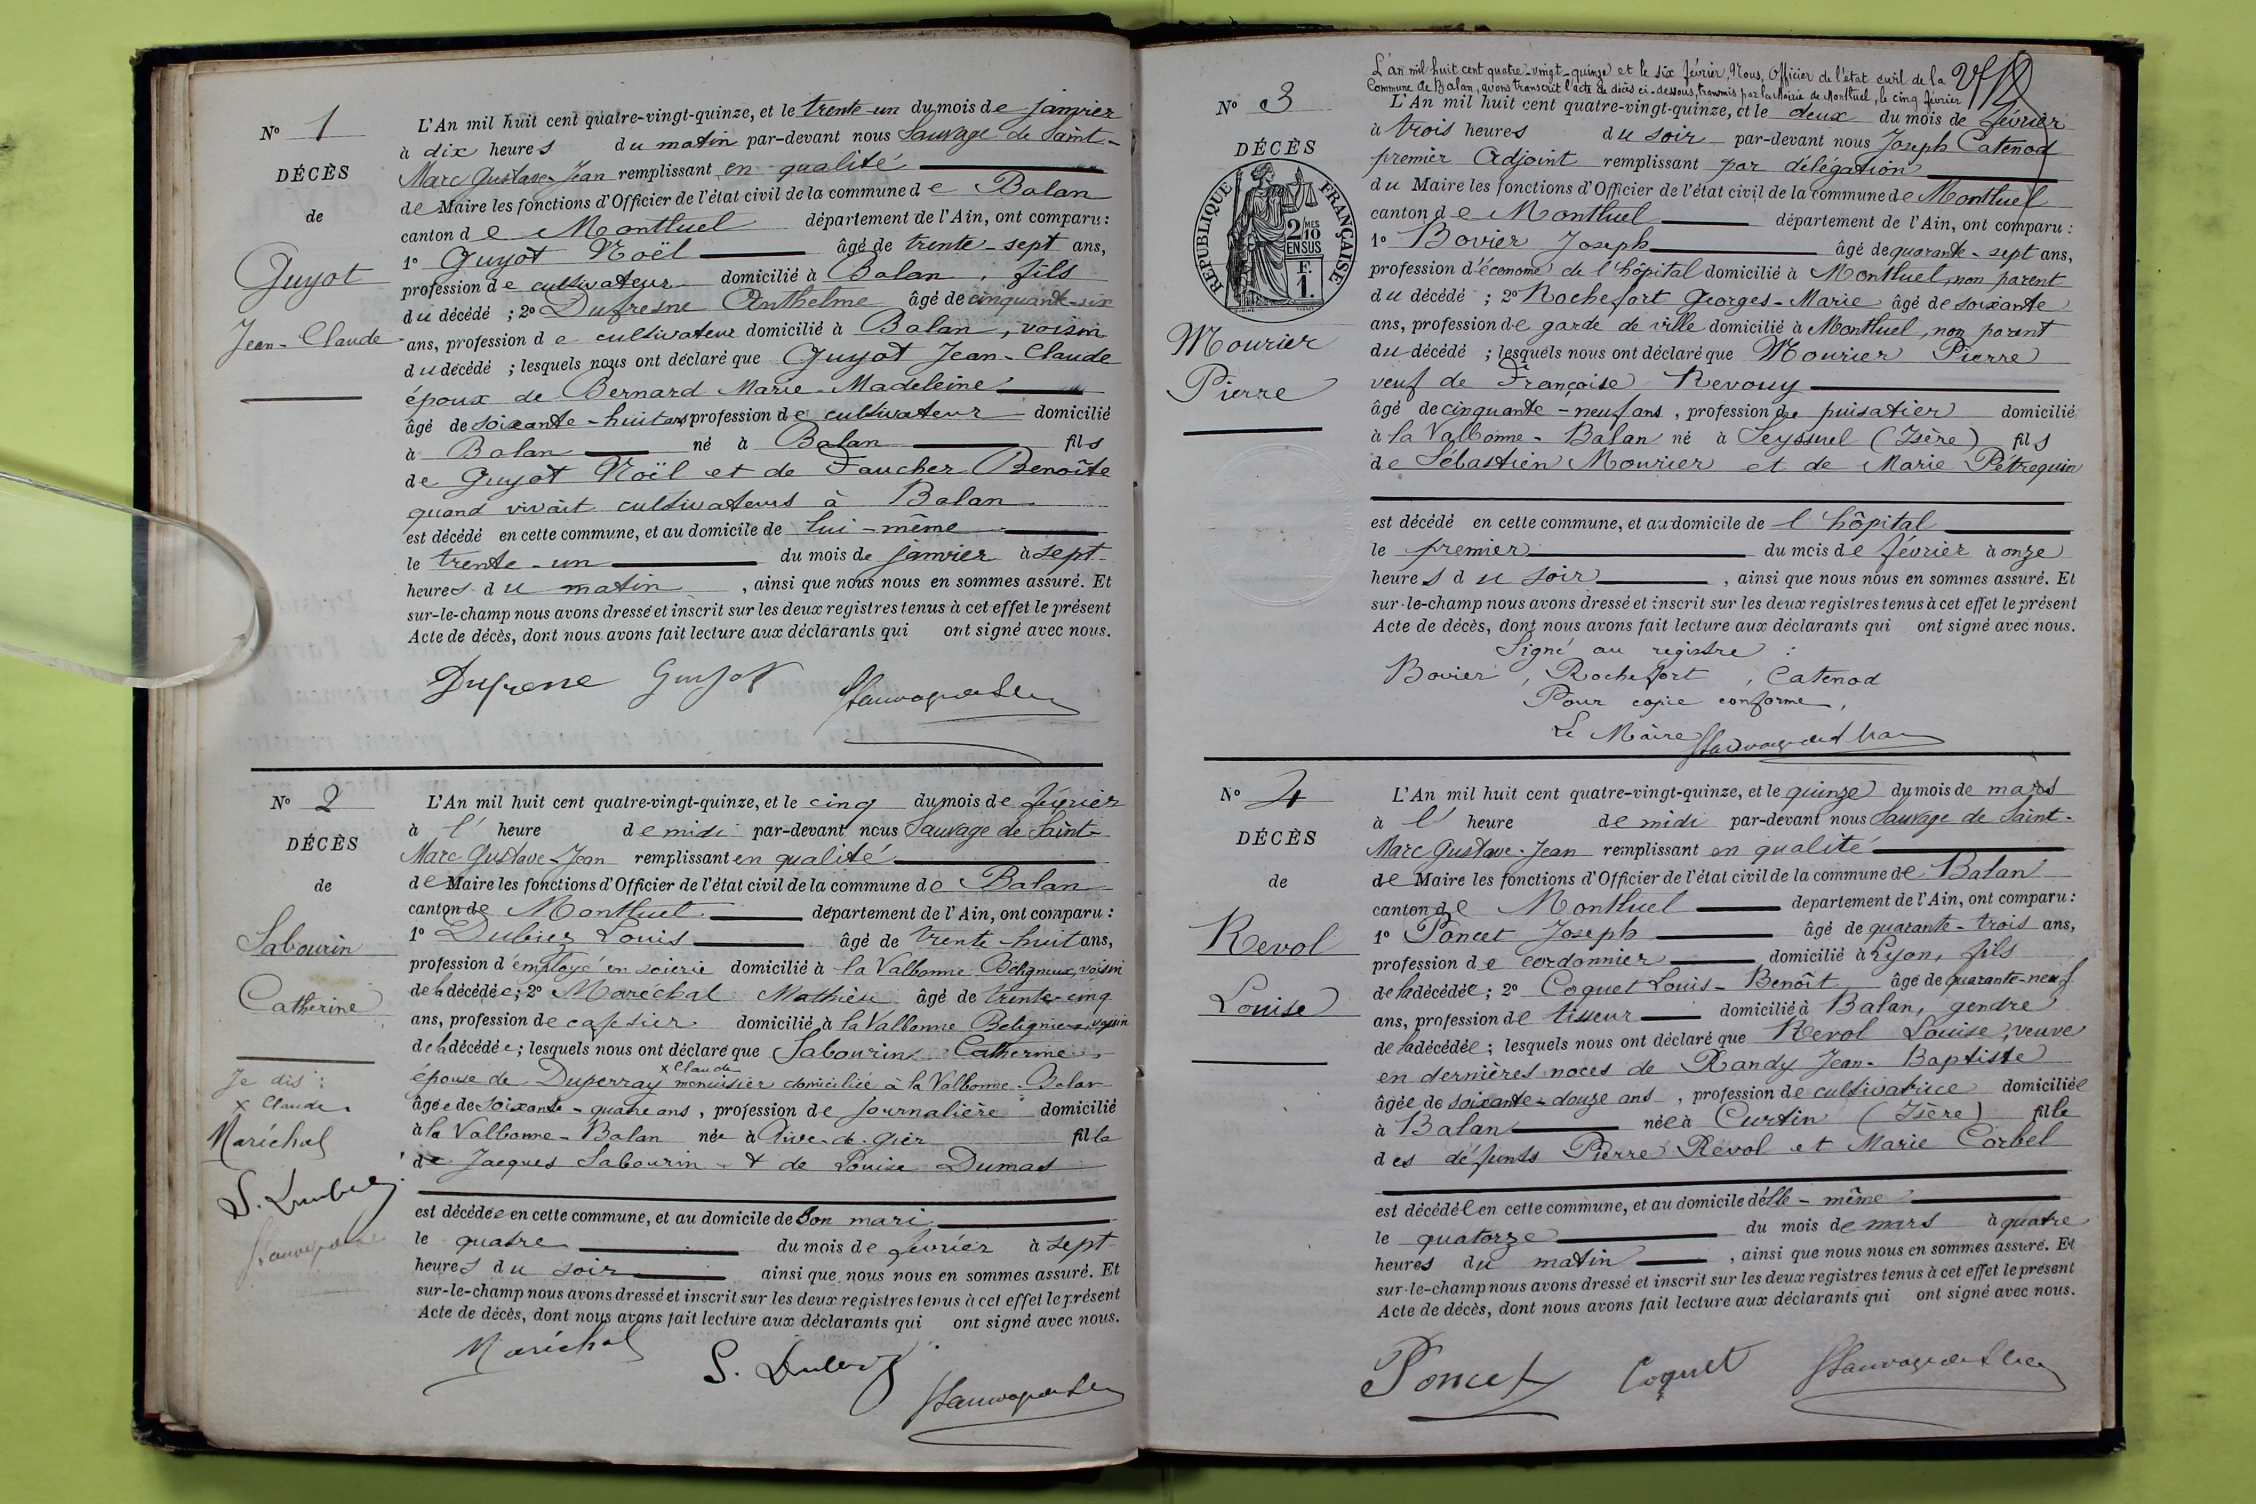 N° 1
DÉCÈS
de
Guyot
Jean-Claude
L'An mil huit cent quatre-vingt-quinze, et le trente-un du mois de janvier
à dix heures du matin par-devant nous Sauvage de Saint-
Marc Gustave-Jean remplissant en qualité
de Maire les fonctions d'Officier de l'état civil de la commune de Balan
canton de Montluel département de l'Ain, ont comparu :
1° Guyot Noël âgé de trente-sept ans,
profession de cultivateur domicilié à Balan, fils
du décédé ; 2° Dufresne Anthelme âgé de cinquante-six
ans, profession de cultivateur domicilié à Balan, voisin
du décédé ; lesquels nous ont déclaré que Guyot Jean-Claude
époux de Bernard Marie-Madeleine
âgé de soixante-huit ans profession de cultivateur domicilié
à Balan né à Balan fils
de Guyot Noël et de Faucher Benoîte
quand vivait cultivateurs à Balan
est décédé en cette commune, et au domicile de lui-même
le trente-un du mois de janvier à sept
heures du matin, ainsi que nous nous en sommes assuré. Et
sur-le-champ nous avons dressé et inscrit sur les deux registres tenus à cet effet le présent
Acte de décès, dont nous avons fait lecture aux déclarants qui ont signé avec nous.
Dufrene Guyot
N° 2
DÉCÈS
de
Sabourin
Catherine
Je dis :
x Claude
Maréchal
L'An mil huit cent quatre-vingt-quinze, et le cinq du mois de février
à l' heure de midi par-devant nous Sauvage de Saint-
Marc Gustave-Jean remplissant en qualité
de Maire les fonctions d'Officier de l'état civil de la commune de Balan
canton de Montluel département de l'Ain, ont comparu :
1° Louis âgé de trente huit ans,
profession d'employé en soierie domicilié à la Valbonne Béligneux, voisin
de la décédée ; 2° Maréchal Mathieu âgé de trente-cinq
ans, profession de cafetier domicilié à la Valbonne Beligneux, voisin
de la décédée ; lesquels nous ont déclaré que Sabourin Catherine
x Claude
épouse de Duperray menuisier domiciliée à la Valbonne-Balan
âgée de soixante-quatre ans, profession de journalière domicilié
à la Valbonne-Balan née à Rive-de-Gier fille
de Jacques Sabourin & de Louise Dumas
est décédée en cette commune, et au domicile de son mari
le quatre du mois de février à sept
heures du soir ainsi que nous nous en sommes assuré. Et
sur-le-champ nous avons dressé et inscrit sur les deux registres tenus à cet effet le présent
Acte de décès, dont nous avons fait lecture aux déclarants qui ont signé avec nous.
Maréchal
L'an mil huit cent quatre-vingt-quinze et le six février, Nous, Officier de l'état civil de la
Commune de Balan, avons transcrit l'acte de décès ci-dessous, transmis par la Mairie de Montluel, le cinq février
N° 3
DÉCÈS
RÉPUBLIQUE FRANÇAISE
2/10 MES
EN SUS
F.
1.
Mourier
Pierre
L'An mil huit cent quatre-vingt-quinze, et le deux du mois de février
à trois heures du soir par-devant nous Joseph Catenod
premier Adjoint remplissant par délégation
du Maire les fonctions d'Officier de l'état civil de la commune de Montluel
canton de Montluel département de l'Ain, ont comparu :
1° Bovier Joseph âgé de quarante-sept ans,
profession d'économe de l'hôpital domicilié à Montluel, non parent
du décédé ; 2° Rochefort Georges-Marie âgé de soixante
ans, profession de garde de ville domicilié à Montluel, non parent
du décédé ; lesquels nous ont déclaré que Mourier Pierre
veuf de Françoise Revouy
âgé de cinquante-neuf ans, profession de puisatier domicilié
à la Valbonne-Balan né à Seyssuel (Isère) fils
de Sébastien Mourier et de Marie Pétrequin
est décédé en cette commune, et au domicile de l'hôpital
le premier du mois de février à onze
heures du soir, ainsi que nous nous en sommes assuré. Et
sur-le-champ nous avons dressé et inscrit sur les deux registres tenus à cet effet le présent
Acte de décès, dont nous avons fait lecture aux déclarants qui ont signé avec nous.
Signé au registre :
Bovier, Rochefort, Catenod
Pour copie conforme,
Le Maire
N° 4
DÉCÈS
de
Revol
Louise
L'An mil huit cent quatre-vingt-quinze, et le quinze du mois de mars
à l' heure de midi par-devant nous Sauvage de Saint-
Marc Gustave-Jean remplissant en qualité
de Maire les fonctions d'Officier de l'état civil de la commune de Balan
canton de Montluel département de l'Ain, ont comparu :
1° Poncet Joseph âgé de quarante-trois ans,
profession de cordonnier domicilié à Lyon, fils
de la décédée ; 2° Coquet Louis-Benoît âgé de quarante-neuf
ans, profession de tisseur domicilié à Balan, gendre
de la décédée ; lesquels nous ont déclaré que Revol Louise, veuve
en dernières noces de Randy Jean-Baptiste
âgée de soixante-douze ans, profession de cultivatrice domiciliée
à Balan née à Curtin (Isère) fille
des défunts Pierre Revol et Marie Corbel
est décédée en cette commune, et au domicile d'elle-même
le quatorze du mois de mars à quatre
heures du matin, ainsi que nous nous en sommes assuré. Et
sur-le-champ nous avons dressé et inscrit sur les deux registres tenus à cet effet le présent
Acte de décès, dont nous avons fait lecture aux déclarants qui ont signé avec nous.
Poncet Coquet